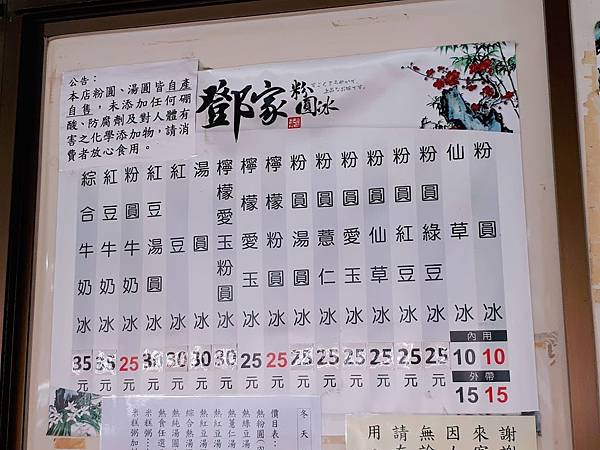 公告：
本店粉圓、湯圓皆自產
自售，未添加任何硼
酸、防腐劑及對人體有
害之化學添加物，請消
費者放心食用。
鄧家粉圓冰
粉圓冰 內用 10 外帶 15
仙草冰 內用 10 外帶 15
粉圓綠豆冰 25元
粉圓紅豆冰 25元
粉圓仙草冰 25元
粉圓愛玉冰 25元
粉圓薏仁冰 25元
粉圓湯圓冰 25元
檸檬粉圓冰 25元
檸檬愛玉冰 25元
檸檬愛玉粉圓冰 30元
湯圓冰 30元
紅豆冰 30元
紅豆湯圓冰 30元
粉圓牛奶冰 25元
紅豆牛奶冰 35元
綜合牛奶冰 35元
冬天
價目表：
熱粉圓
熱綠豆湯
熱薏仁湯
熱紅豆湯
熱紅豆湯
綜合熱湯
熱純湯圓
熱食任選
米糕粥
米糕粥加
謝謝
來客
因人
無論
請在
用